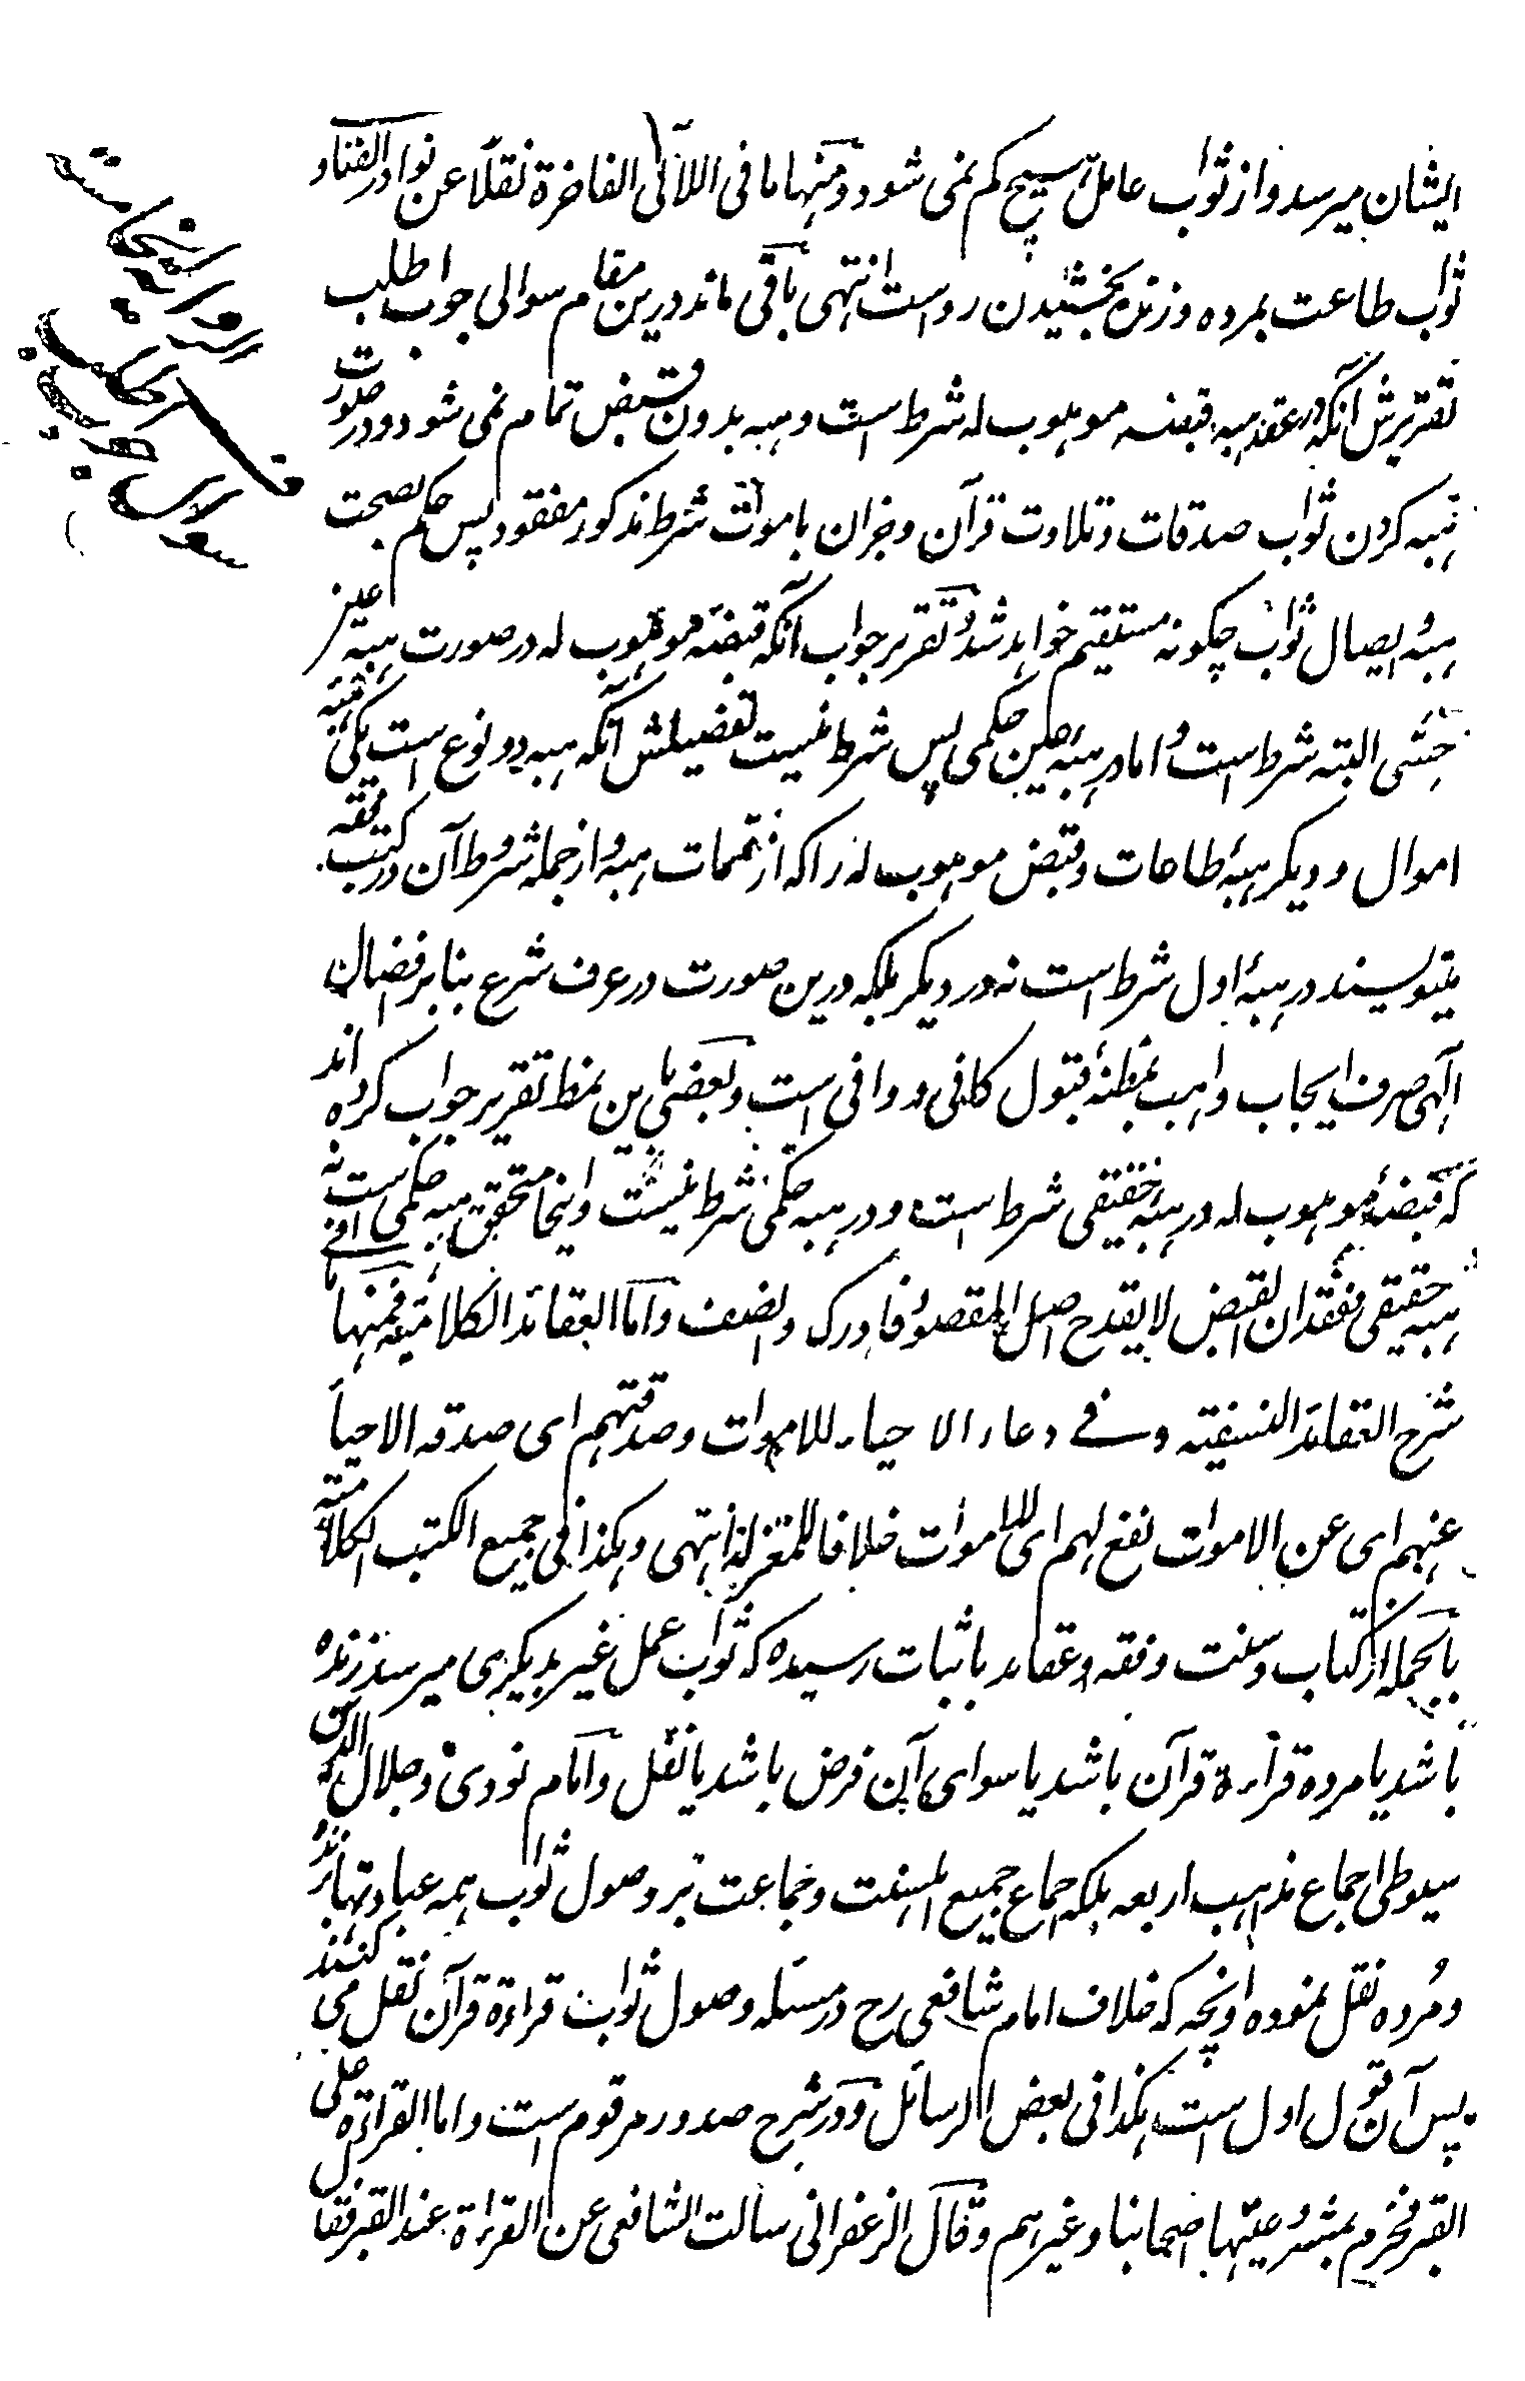 ایشان میرسد و از ثواب عامل هیچ کم نمی شود و منها ما فی اللآلی الفاخرة نقلا عن نوادر الفتاو
ثواب طاعت بمرده و زنده بخشیدن رواست انتهی باقی ماند درین مقام سوالی جواب طلب
تقریرش آنکه در عقد هبه قبضه موهوب له شرط است و هبه بدون قبض تمام نمی شود و در صورت
هبه کردن ثواب صدقات و تلاوت قرآن و جز آن باموات شرط مذکور مفقود پس حکم بصحت
هبهٔ ایصال ثواب چگونه مستقیم خواهد شد و تقریر جواب آنکه قبضهٔ موهوب له در صورت هبهٔ عین
حسّی البته شرط است و اما در هبهٔ عین حکمی پس شرط نیست تفصیلش آنکه هبه دو نوع است یکی هبهٔ
اموال و دیگر هبهٔ طاعات و قبض موهوب له را که از متممات هبه و از جمله شروط آن در کتب فقه
مینویسند در هبهٔ اول شرط است نه در دیگر بلکه درین صورت در عرف شرع بنا بر افضال
الهی صرف ایجاب واهب بمظنهٔ قبول کافی و وافی است و بعضی باین نمط تقریر جواب کرده اند
که قبضهٔ موهوب له در هبهٔ حقیقی شرط است و در هبه حکمی شرط نیست و اینجا متحقق هبه حکمی است نه
هبه حقیقی ففقدان القبض لا یقدح اصل المقصود فادرک وانصف و اما العقائد الکلامیة فمنها ما فی
شرح العقائد النسفیة و فی دعاء الاحیاء للاموات و صدقتهم ای صدقه الاحیاء
عنهم ای عن الاموات نفع لهم ای للاموات خلافا للمعتزلة انتهی و هکذا فی جمیع الکتب الکلامیة
بالجمله از کتاب و سنت و فقه و عقاید باثبات رسیده که ثواب عمل غیر بدیگری میرسد زنده
باشد یا مرده قراءة قرآن باشد یا سوای آن فرض باشد یا نفل و امام نووی و جلال الدین
سیوطی اجماع مذاهب اربعه بلکه اجماع جمیع اهلسنت و جماعت بر وصول ثواب همه عبادتها بزنده
و مُرده نقل نموده و آنچه که خلاف امام شافعی رح در مسئله وصول ثواب قراءة قرآن نقل می کنند
پس آن قول اول است هکذا فی بعض الرسائل و در شرح صدور مرقوم است و اما القراءة علی
القبر فجزم بمشروعیتها اصحابنا و غیرهم و قال الزعفرانی سألت الشافعی عن القراءة عند القبر فقال
سوالی
جواب طلب